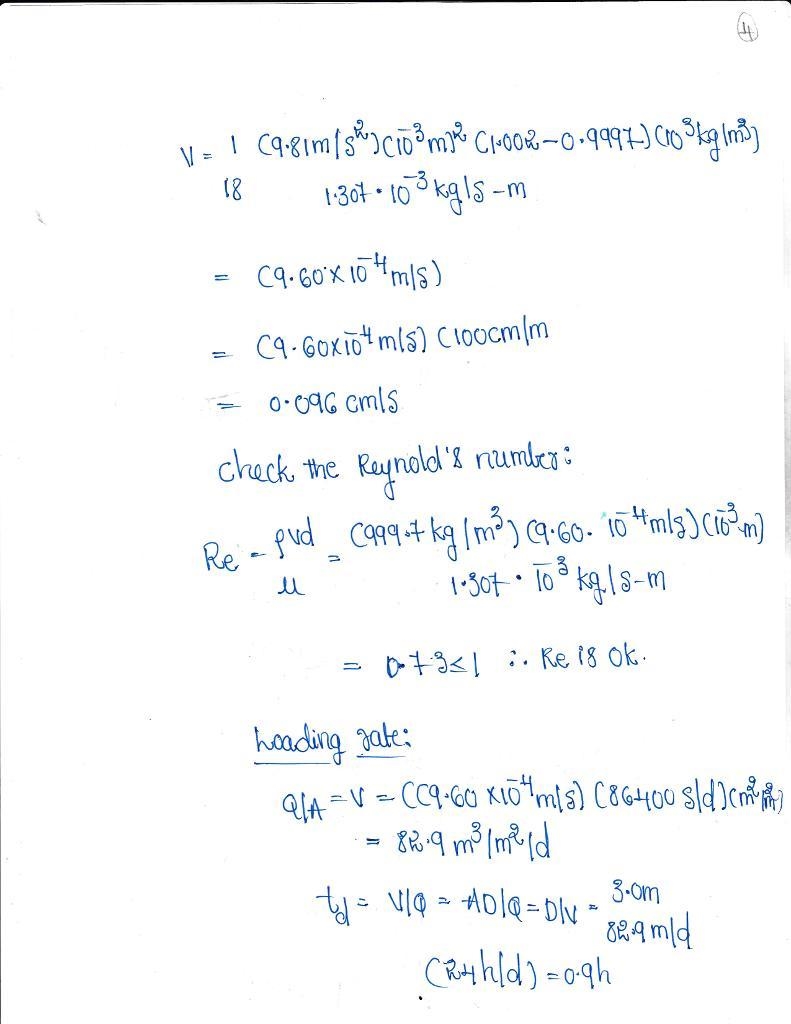 4
V = 1 (9.81m/s²)(10⁻³m)² (1.002-0.9997)(10³kg/m³)
18 1.307·10⁻³kg/s-m
= (9.60×10⁻⁴m/s)
= (9.60×10⁻⁴m/s) (100cm/m
= 0.096 cm/s
check the Reynold's number:
Re = ρvd = (999.7kg/m³)(9.60·10⁻⁴m/s)(10⁻³m)
μ 1.307·10⁻³kg/s-m
= 0.73<1 ∴ Re is Ok.
Loading rate:
Q/A = V = ((9.60×10⁻⁴m/s)(86400 s/d)(m²/m²)
= 82.9 m³/m²/d
td = V/Q = AD/Q = D/V = 3.0m
82.9m/d
(24h/d) = 0.9h